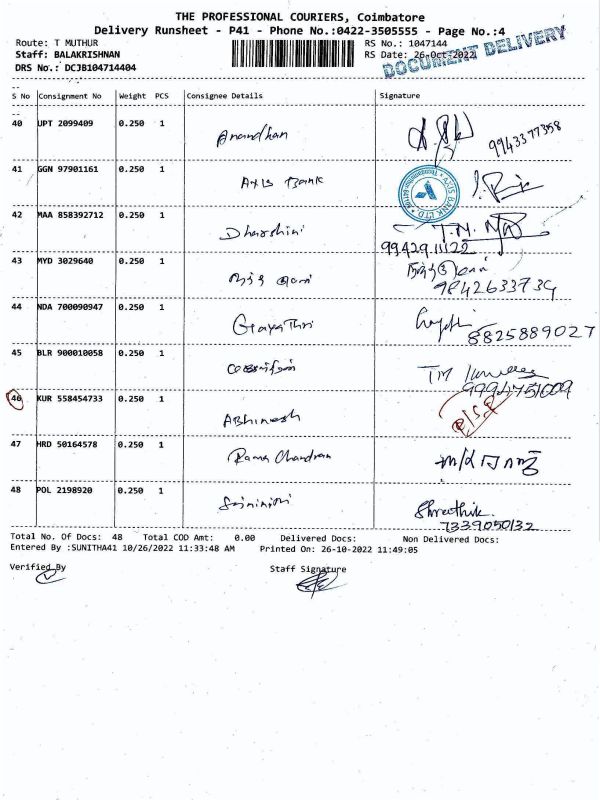 THE PROFESSIONAL COURIERS, Coimbatore
Delivery Runsheet - P41 - Phone No.:0422-3505555 - Page No.:4
Route: T MUTHUR
RS No.: 1047144
Staff: BALAKRISHNAN
RS Date: 26-Oct-2022
DOCUMENT DELIVERY
DRS No.: DCJB104714404
S No Consignment No Weight PCS Consignee Details Signature
40 UPT 2099409 0.250 1 Anandhan 9943377358
41 GGN 97901161 0.250 1 Axis Bank
AXIS BANK LTD
42 MAA 858392712 0.250 1 Dharshini T.N.
9942911122
43 MYD 3029640 0.250 1
9842633739
44 NDA 700090947 0.250 1 Gayathri
8825889027
45 BLR 900010058 0.250 1 TM
9994751009
46 KUR 558454733 0.250 1 Abhinesh
47 HRD 50164578 0.250 1 Rama Chandran
48 POL 2198920 0.250 1 Srininithi Shreethik
7339050132
Total No. Of Docs: 48 Total COD Amt: 0.00 Delivered Docs: Non Delivered Docs:
Entered By :SUNITHA41 10/26/2022 11:33:48 AM Printed On: 26-10-2022 11:49:05
Verified By Staff Signature